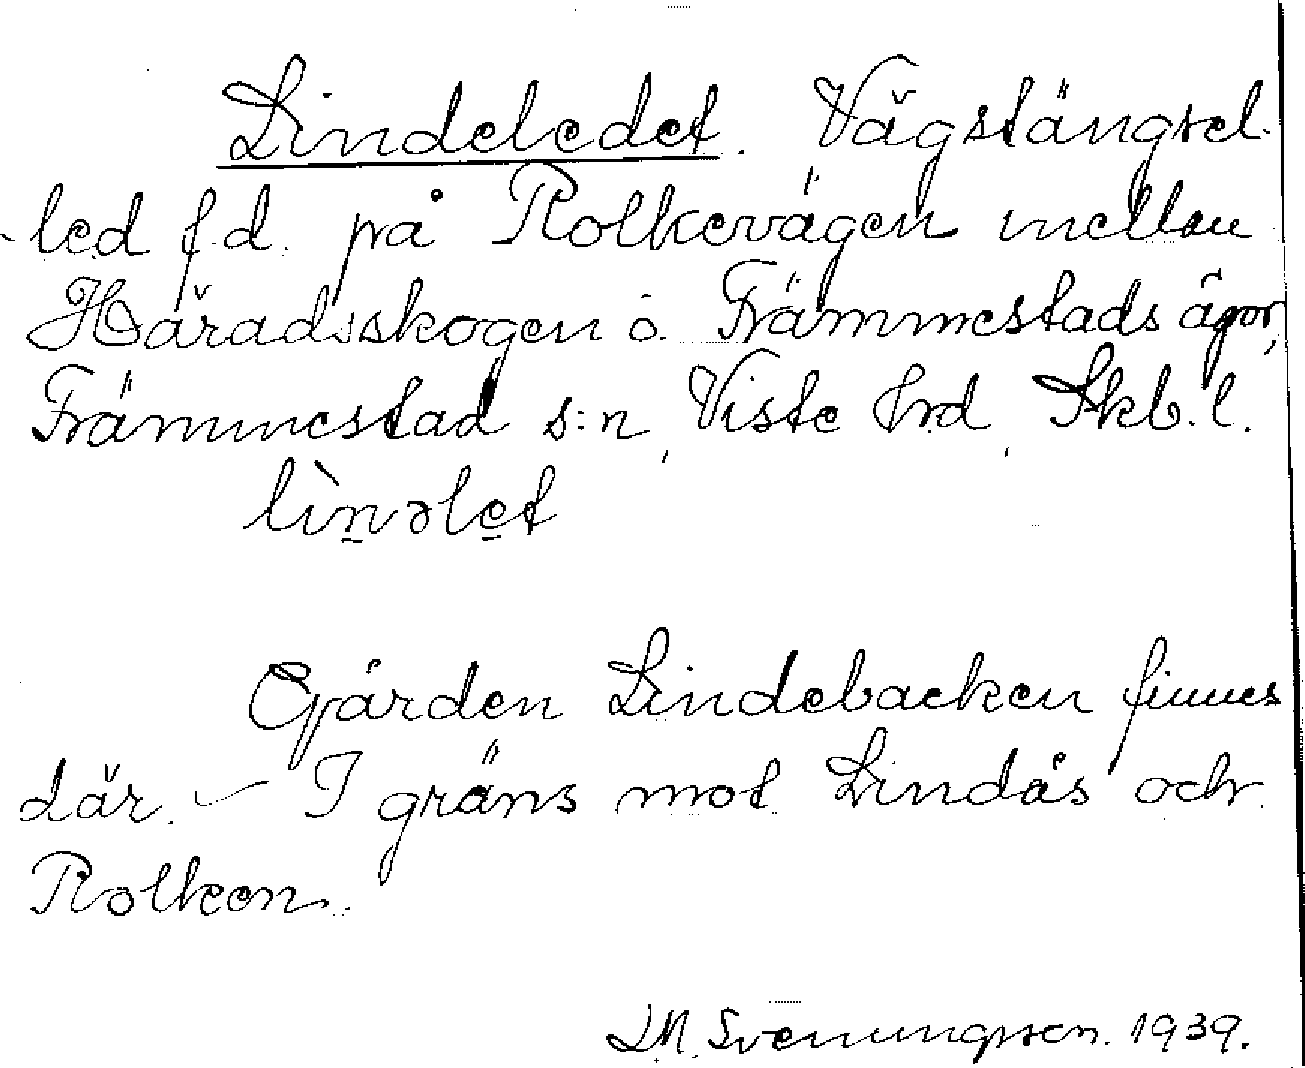 Lindeledet. Vägstängsel-
led f.d. på Rolkevägen mellan
Häradsskogen o. Främmestads ägor,
Främmestad s:n, Viste hrd, Skb. l.
lìnəlet
Gården Lindebacken finnes
där. – I gräns mot Lindås och
Rolken.
Svenungsson. 1939.